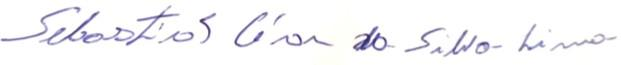 Sebastião César da Silva Lima